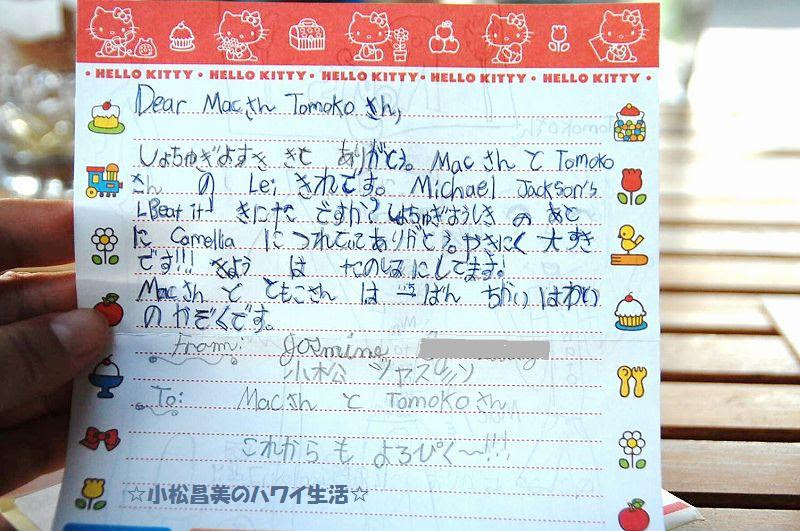 • HELLO KITTY • HELLO KITTY • HELLO KITTY • HELLO KITTY • HELLO KITTY •
Dear Macさん Tomoko さん,
しょちゅぎよすき きて ありがとう。 Mac さん と Tomoko
さん の Lei きれです。 Michael Jackson's
"Beat it" きにた ですか? しょちゅぎようしき の あと
に Camellia に つれてってありがとう。やきにく 大すき
です!!! きょう は たのしみ にしてます。
Macさん と ともこさん は 一ばん ちかい はわい
の かぞくです。
From: Jasmine
小松 ジャスミン
To: Macさん と Tomoko さん
これから も よろぴく〜!!!
☆小松昌美のハワイ生活☆